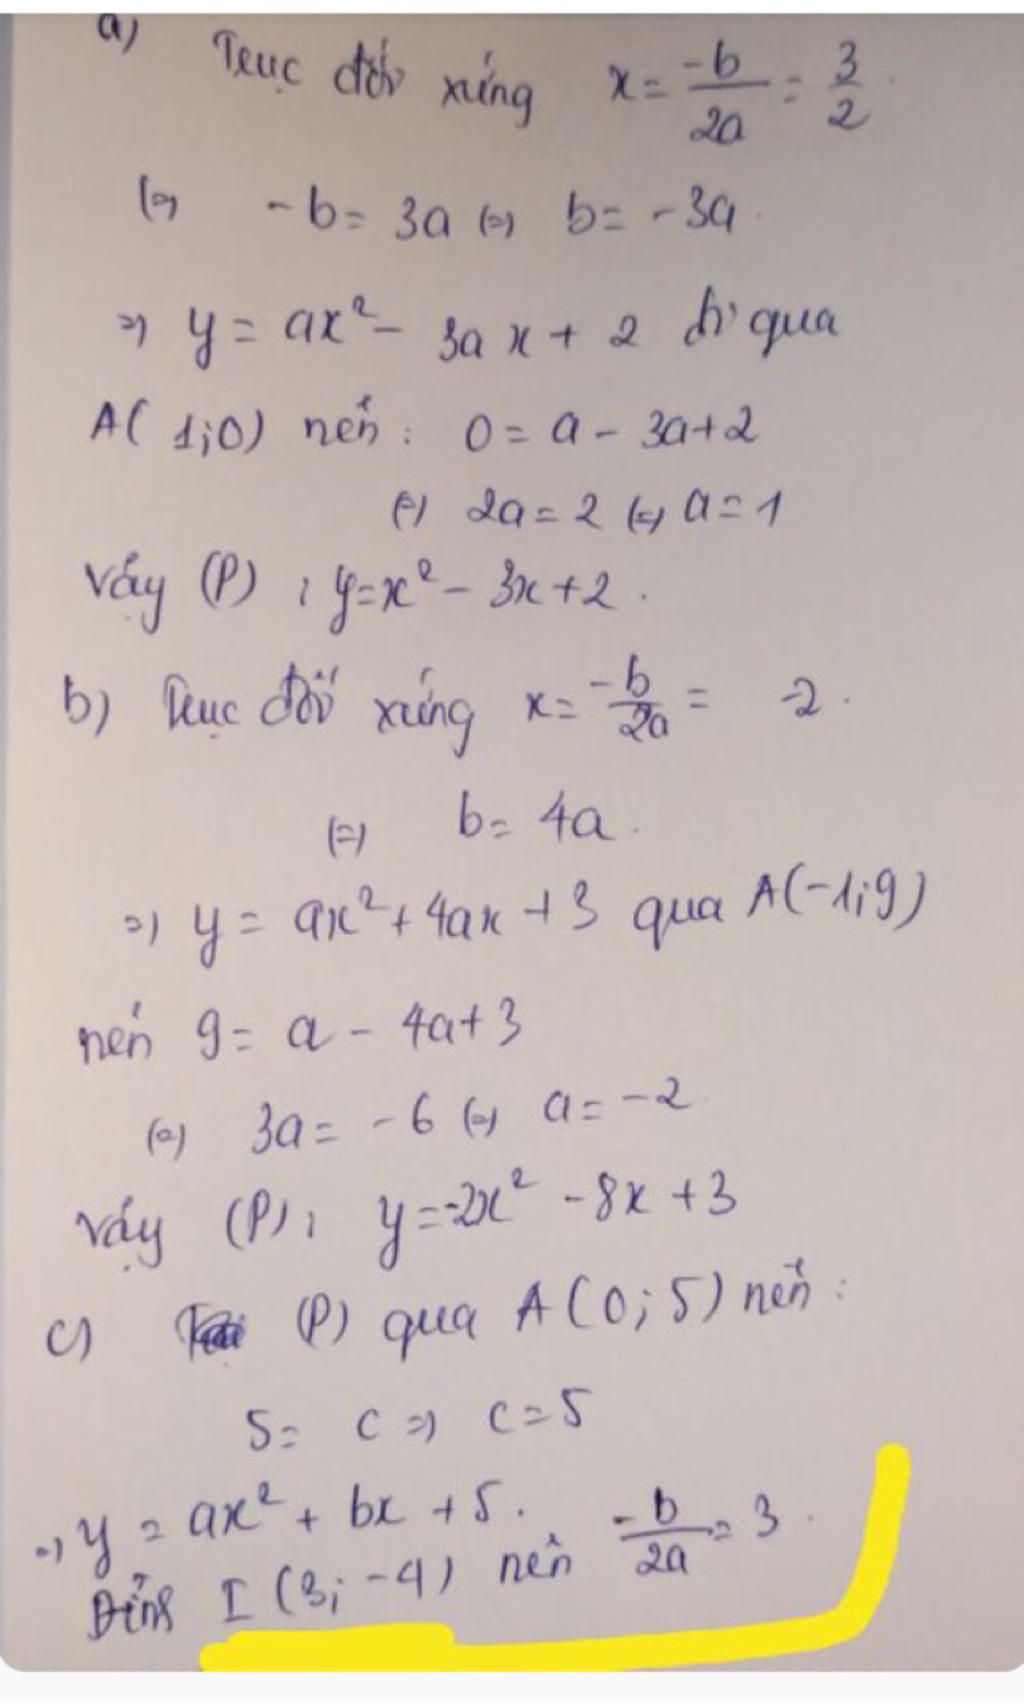 a) Trục đối xứng x = -b/2a = 3/2.
(=) -b = 3a (=) b = -3a.
=) y = ax² - 3ax + 2 đi qua
A(1;0) nên: 0 = a - 3a + 2
(=) 2a = 2 (=) a = 1
Vậy (P): y = x² - 3x + 2.
b) Trục đối xứng x = -b/2a = -2.
(=) b = 4a.
=) y = ax² + 4ax + 3 qua A(-1;9)
nên 9 = a - 4a + 3
(=) 3a = -6 (=) a = -2
Vậy (P): y = -2x² - 8x + 3
c) (P) qua A(0;5) nên:
5 = c =) c = 5
=) y = ax² + bx + 5.
Đỉnh I(3;-4) nên -b/2a = 3.